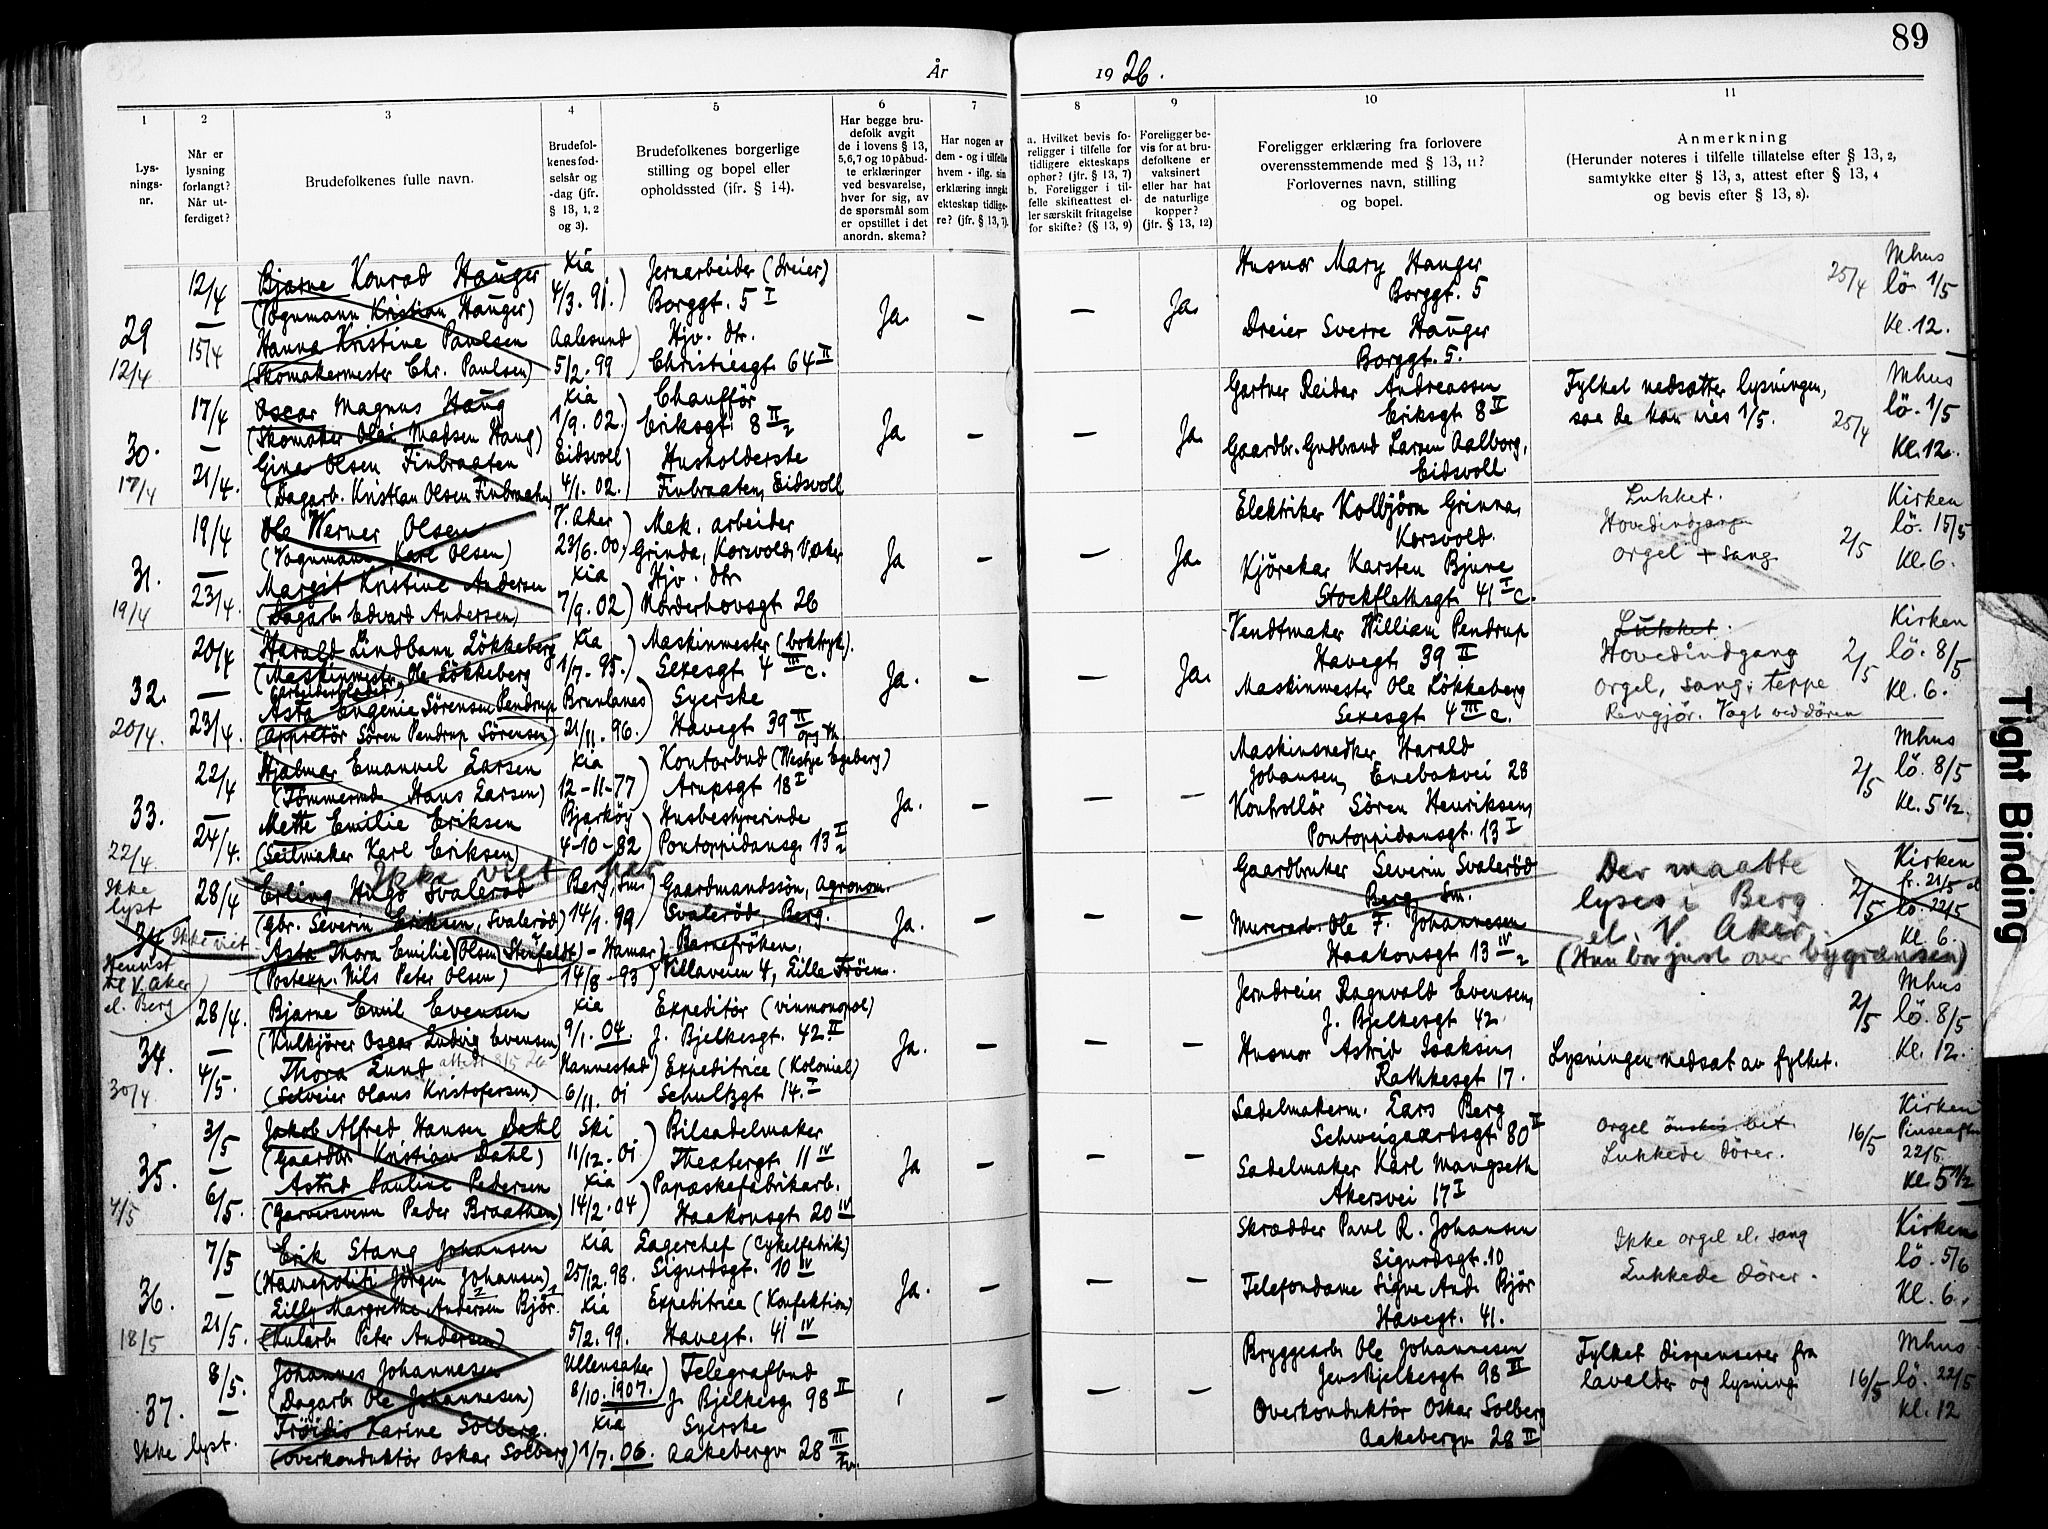 89
År 1926.
1
Lys-
nings-
nr.
2
Når er
lysning
forlangt?
Når ut-
ferdiget?
3
Brudefolkenes fulle navn.
4
Brudefol-
kenes fød-
selsår og
-dag (jfr.
§ 13, 1, 2
og 3).
5
Brudefolkenes borgerlige
stilling og bopel eller
opholdssted (jfr. § 14).
6
Har begge bru-
defolk avgit
de i lovens § 13,
5,6,7 og 10 påbud-
te erklæringer
ved besvarelse,
hver for sig, av
de spørsmål som
er opstillet i det
anordn. skema?
7
Har nogen av
dem - og i tilfelle
hvem - iflg. sin
erklæring inngått
ekteskap tidlige-
re? (jfr. § 13, 7).
8
a. Hvilket bevis fo-
religger i tilfelle for
tidligere ekteskaps
ophør? (jfr. § 13, 7)
b. Foreligger i til-
felle skifteattest el-
ler særskilt fritagelse
for skifte? (§ 13, 9)
9
Foreligger be-
vis for at bru-
defolkene er
vaksinert
eller har hat
de naturlige
kopper?
(jfr. § 13, 12)
10
Foreligger erklæring fra forlovere
overensstemmende med § 13, 11?
Forlovernes navn, stilling
og bopel.
11
Anmerkning
(Herunder noteres i tilfelle tillatelse efter § 13, 2,
samtykke efter § 13, 3, attest efter § 13, 4
og bevis efter § 13, 8).
29
12/4
12/4
—
15/4
Bjarne Konrad Hauger
(Vognmann Kristian Hauger)
Hanna Kristine Paulsen
(Skomakermester Chr. Paulsen)
Xia
4/3. 91.)
Aalesund
5/2. 99
Jernarbeider (dreier)
Borggt. 5 I
Hjv. dtr.
Christiesgt 64 II
Ja. — — Ja.
Husmor Mary Hauger
Borggt. 5
Dreier Sverre Hauger
Borggt. 5.
25/4
Mhus
lö. 1/5
Kl. 12.
30.
17/4
17/4
—
21/4.
Oscar Magnus Haug
(Skomaker Olai Madsen Haug)
Gina Olsen Finbraaten
(Dagarb. Kristian Olsen Finbraaten)
Xia
1/9. 02.)
Eidsvoll
4/1. 02.)
Chauffør
Eriksgt. 8 II
Husholderske
Finbraaten, Eidsvoll
Ja — — Ja.
Gartner Reidar Andreassen
Eriksgt 8 II
Gaardbr. Gudbrand Larsen Aalborg,
Eidsvoll
Fylket nedsætter lysningen,
saa de kan vies 1/5.
25/4
Mhus
lö. 1/5
Kl. 12.
31.
19/4
19/4
—
23/4.
Ole Werner Olsen
(Vognmann Karl Olsen)
Margit Kristine Andersen
(Dagarb. Edvard Andersen)
V. Aker
23/6. 00.)
Xia
7/9. 02)
Mek. arbeider
Grinda, Korsvold, V. Aker
Hjv. dtr
Norderhovsgt 26
Ja — — Ja.
Elektriker Kolbjörn Grinna,
Korsvold.
Kjörekar Karsten Bjune
Stockflethsgt 41 I c.
Lukket.
Hovedindgangen
orgel + sang
2/5
Kirken
lö. 15/5
Kl. 6.
32.
20/4.
20/4
—
23/4.
Harald Lindbann Lökkeberg
(Maskinmestr. Ole Lökkeberg
Arbeiderbladet)
Asta Eugenie Sörensen Pendrup
(Appretör Sören Pendrup Sörensen)
Xia
1/7. 95.)
Brunlanes
21/11. 96.)
Maskinmester (boktryk).
Sexesgt 4 III c.
Syerske
Havegt 39 II
Ja. — — Ja.
Vendtmaker William Pendrup
Havegt 39 II
Maskinmester Ole Lökkeberg
Sexesgt 4 III c.
Lukket.
Hovedindgang
orgel, sang, teppe
Rengjör. Vagt ved dören
2/5
Kirken
lö. 8/5
Kl. 6.
33.
22/4
22/4
—
24/4.
Hjalmar Emanuel Larsen
(Tömmermd. Hans Larsen)
Mette Emilie Eriksen
(Seilmaker Karl Eriksen)
Xia
12-11-77)
Bjarköy
4-10-82)
Kontorbud (Westye Egeberg)
Arupsgt 18 I
Husbestyrerinde
Pontoppidansg. 13 I
Ja. — — —
Maskinsnedker Harald
Johansen, Enebakvei 28
Kontrollör Sören Henriksen,
Pontoppidansgt. 13 I
2/5
Mhus
lö. 8/5
Kl. 5 1/2.
Ikke viet her
Ikke
lyst
34 Ikke viet
Henvist
til V. Aker
el. Berg
28/4
—
Erling Hugo Svaleröd
(Gbr. Severin Eriksen, Svaleröd)
Asta Thora Emilie (Olsen) Steifeldt)
(Postexp. Nils Peter Olsen)
Berg, Sm.
14/9. 99
Hamar
14/8-93)
Gaardmandssön, Agronom.
Svaleröd, Berg.
Barnefröken.
Villaveien 4, Lille Fröen.
Ja. — — —
Gaardbruker Severin Svaleröd
Berg Sm.
Murerarb. Ole F. Johannesen
Haakonsgt 13 IV
Der maatte
lyses i Berg
el. V. Aker.
(Hun bor just over bygrænsen)
2/5
Kirken
fr. 21/5 el
lö. 22/5
Kl. 6.
34.
30/4
28/4.
—
4/5.
Bjarne Emil Evensen
(Kulkjörer Oscar Ludvig Evensen)
Thora Lund attest 8/5 26
(Selveier Olaus Kristofersen)
Xia
9/1. 04.)
Hannestad)
6/11. 01
Expeditör (vinmonopol)
J. Bjelkesgt. 42. II
Expeditrice (Kolonial)
Schultzgt 14. I
Ja. — — —
Jerndreier Ragnvald Evensen,
J. Bjelkesgt 42
Husmor Astrid Isaksen,
Rathkesgt 17.
Lysningen nedsat av fylket.
2/5
Mhus
lö. 8/5
Kl. 12.
35.
4/5
3/5
—
6/5.
Jakob Alfred Hansen Dahl
(Gaardbr. Kristian Dahl)
Astrid Pauline Pedersen
(Garversvenn Peder Braathen)
Ski
11/12. 01)
Xia
14/2. 04)
Bilsadelmaker
Theatergt 11 IV
Papæskefabrikarb.
Haakonsgt 20 IV
Ja — — —
Sadelmakerm. Lars Berg
Schweigaardsgt 80 II
Sadelmaker Karl Mangseth
Akersvei 17 I
Orgel
Lukkede dörer.
16/5
Kirken
Pinseaften
22/5.
Kl. 5 1/2
36.
18/5
7/5
—
21/5.
Erik Stang Johansen
(Havnepoliti Jörgen Johansen)
Lilly Margrethe Andersen Björ.
(Kularb. Peter Andersen)
Xia
25/12. 98.
Xia
5/2. 99.
Lagerchef (Cykelfabrik)
Sigurdsgt. 10 IV
Expeditrice (Konfektion)
Havegt. 41 IV
Ja. — — —
Skrædder Paul R. Johansen
Sigurdsgt. 10
Telefondame Signe And. Björ
Havegt. 41.
Ikke orgel el. sang
Lukkede dörer.
Kirken
lö. 5/6
Kl. 6.
37.
Ikke lyst.
8/5.
—
Johannes Johannesen
(Dagarb. Ole Johannesen)
Fröidis Karine Solberg.
(Overkonduktör Oskar Solberg)
Ullensaker
8/10. 1907.)
Xia
1/7. 06.
Telegrafbud
J. Bjelkesg. 98 II
Syerske
Aakebergv 28 III
— — —
Bryggearb. Ole Johannesen
Jens Bjelkesgt 98 II
Overkonduktör Oskar Solberg
Aakebergv 28 II
Fylket dispenserer fra
lavalder og lysning
16/5
Mhus
lö. 22/5
Kl. 12
Tight Binding